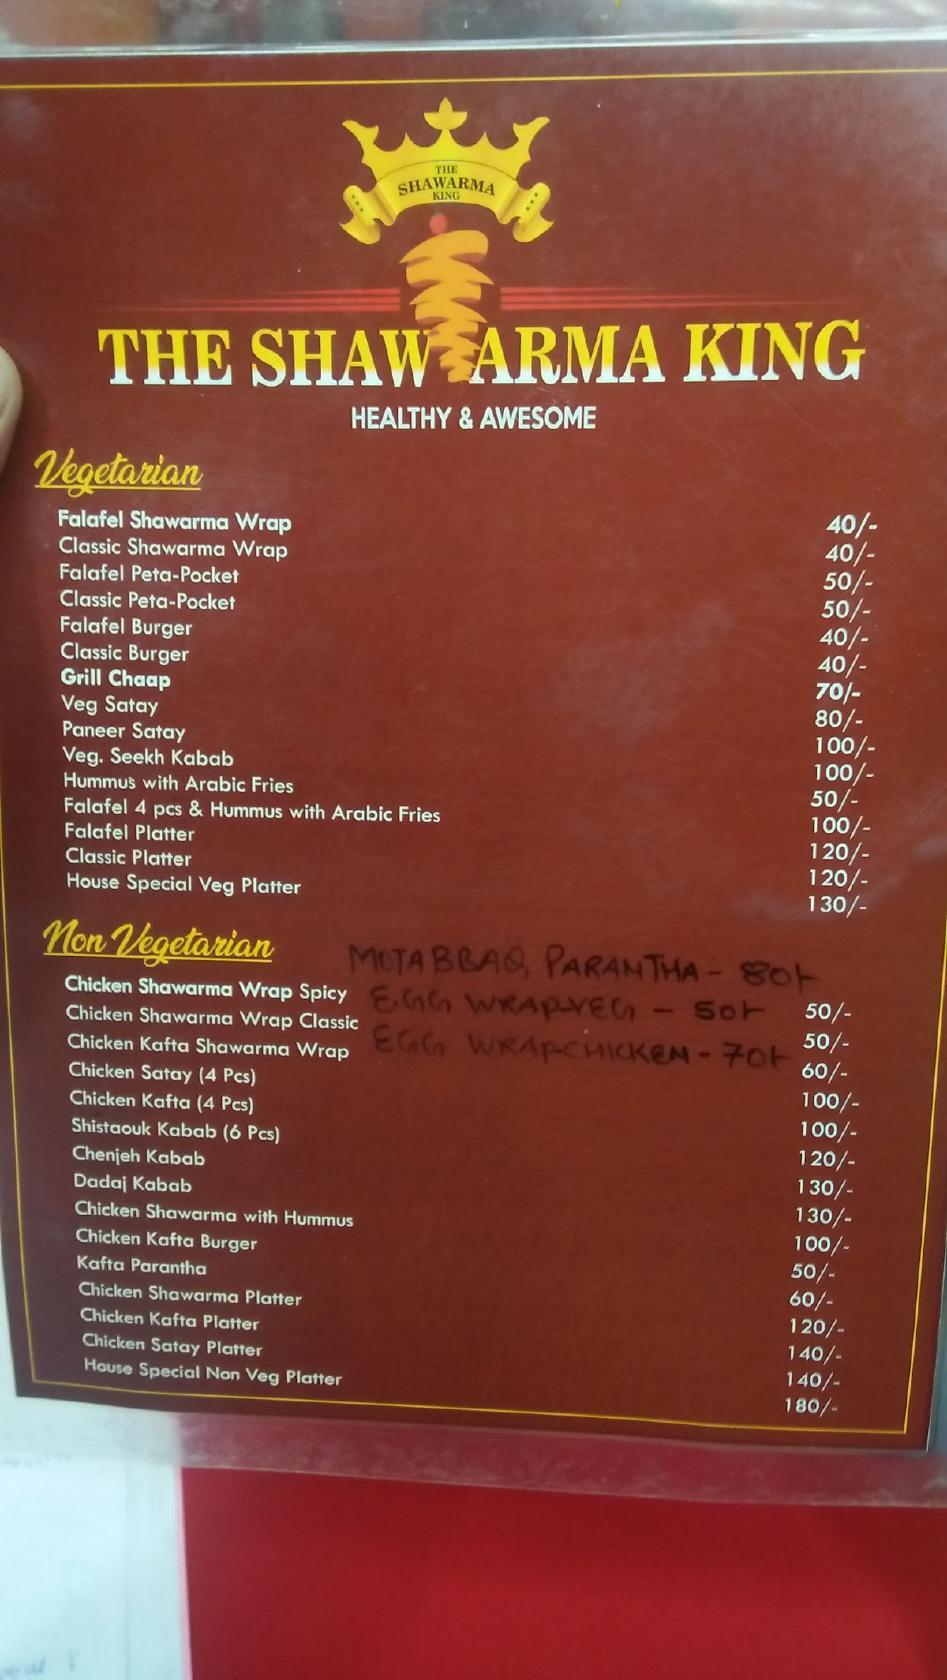 THE
SHAWARMA
KING
THE SHAWARMA KING
HEALTHY & AWESOME
Vegetarian
Falafel Shawarma Wrap 40/-
Classic Shawarma Wrap 40/-
Falafel Peta-Pocket 50/-
Classic Peta-Pocket 50/-
Falafel Burger 40/-
Classic Burger 40/-
Grill Chaap 70/-
Veg Satay 80/-
Paneer Satay 100/-
Veg. Seekh Kabab 100/-
Hummus with Arabic Fries 50/-
Falafel 4 pcs & Hummus with Arabic Fries 100/-
Falafel Platter 120/-
Classic Platter 120/-
House Special Veg Platter 130/-
Non Vegetarian
MOTABBAQ PARANTHA - 80/-
Chicken Shawarma Wrap Spicy 50/-
EGG WRAP-VEG - 50/-
Chicken Shawarma Wrap Classic 50/-
EGG WRAP-CHICKEN - 70/-
Chicken Kafta Shawarma Wrap 60/-
Chicken Satay (4 Pcs) 100/-
Chicken Kafta (4 Pcs) 100/-
Shistaouk Kabab (6 Pcs) 120/-
Chenjeh Kabab 130/-
Dadaj Kabab 130/-
Chicken Shawarma with Hummus 100/-
Chicken Kafta Burger 50/-
Kafta Parantha 60/-
Chicken Shawarma Platter 120/-
Chicken Kafta Platter 140/-
Chicken Satay Platter 140/-
House Special Non Veg Platter 180/-